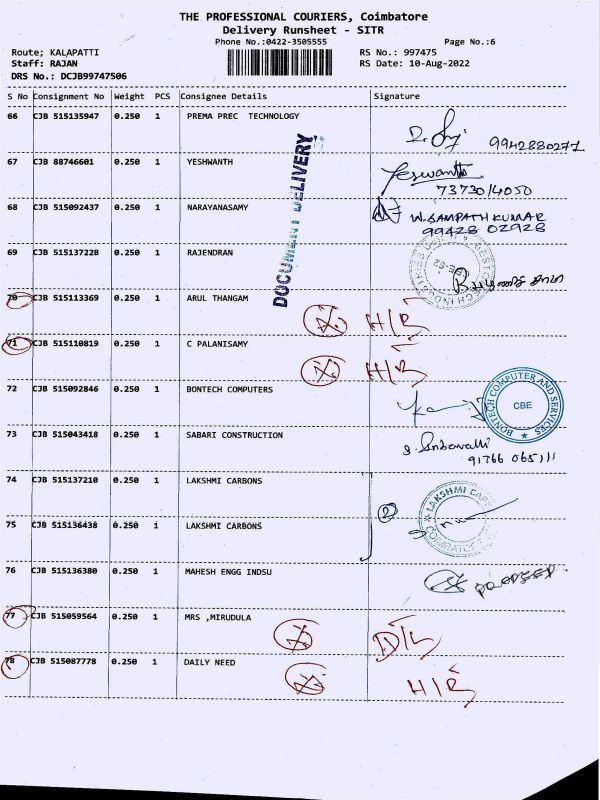 THE PROFESSIONAL COURIERS, Coimbatore
Delivery Runsheet - SITR
Phone No.:0422-3505555 Page No.:6
Route; KALAPATTI RS No.: 997475
Staff: RAJAN RS Date: 10-Aug-2022
DRS No.: DCJB99747506
S No Consignment No Weight PCS Consignee Details Signature
66 CJB 515135947 0.250 1 PREMA PREC TECHNOLOGY
9942880277
DOCUMENT DELIVERY
67 CJB 88746601 0.250 1 YESHWANTH Yeswanth
7373014050
68 CJB 515092437 0.250 1 NARAYANASAMY W.SAMPATHKUMAR
99428 02928
69 CJB 515137228 0.250 1 RAJENDRAN
70 CJB 515113369 0.250 1 ARUL THANGAM
H/R
71 CJB 515110819 0.250 1 C PALANISAMY
H/R
72 CJB 515092846 0.250 1 BONTECH COMPUTERS
BONTECH COMPUTER AND SERVICES
CBE
73 CJB 515043418 0.250 1 SABARI CONSTRUCTION
91766 065111
74 CJB 515137210 0.250 1 LAKSHMI CARBONS
2
LAKSHMI
75 CJB 515136438 0.250 1 LAKSHMI CARBONS
76 CJB 515136380 0.250 1 MAHESH ENGG INDSU
77 CJB 515059564 0.250 1 MRS ,MIRUDULA
D/L
78 CJB 515087778 0.250 1 DAILY NEED
H/R